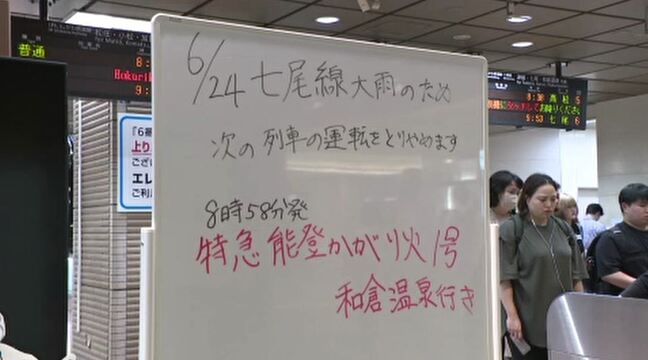 6/24 七尾線大雨のため
次の列車の運転をとりやめます
8時58分発
特急 能登かがり火1号
和倉温泉行き
普通
8:38 高松 5
9:53 七尾 6